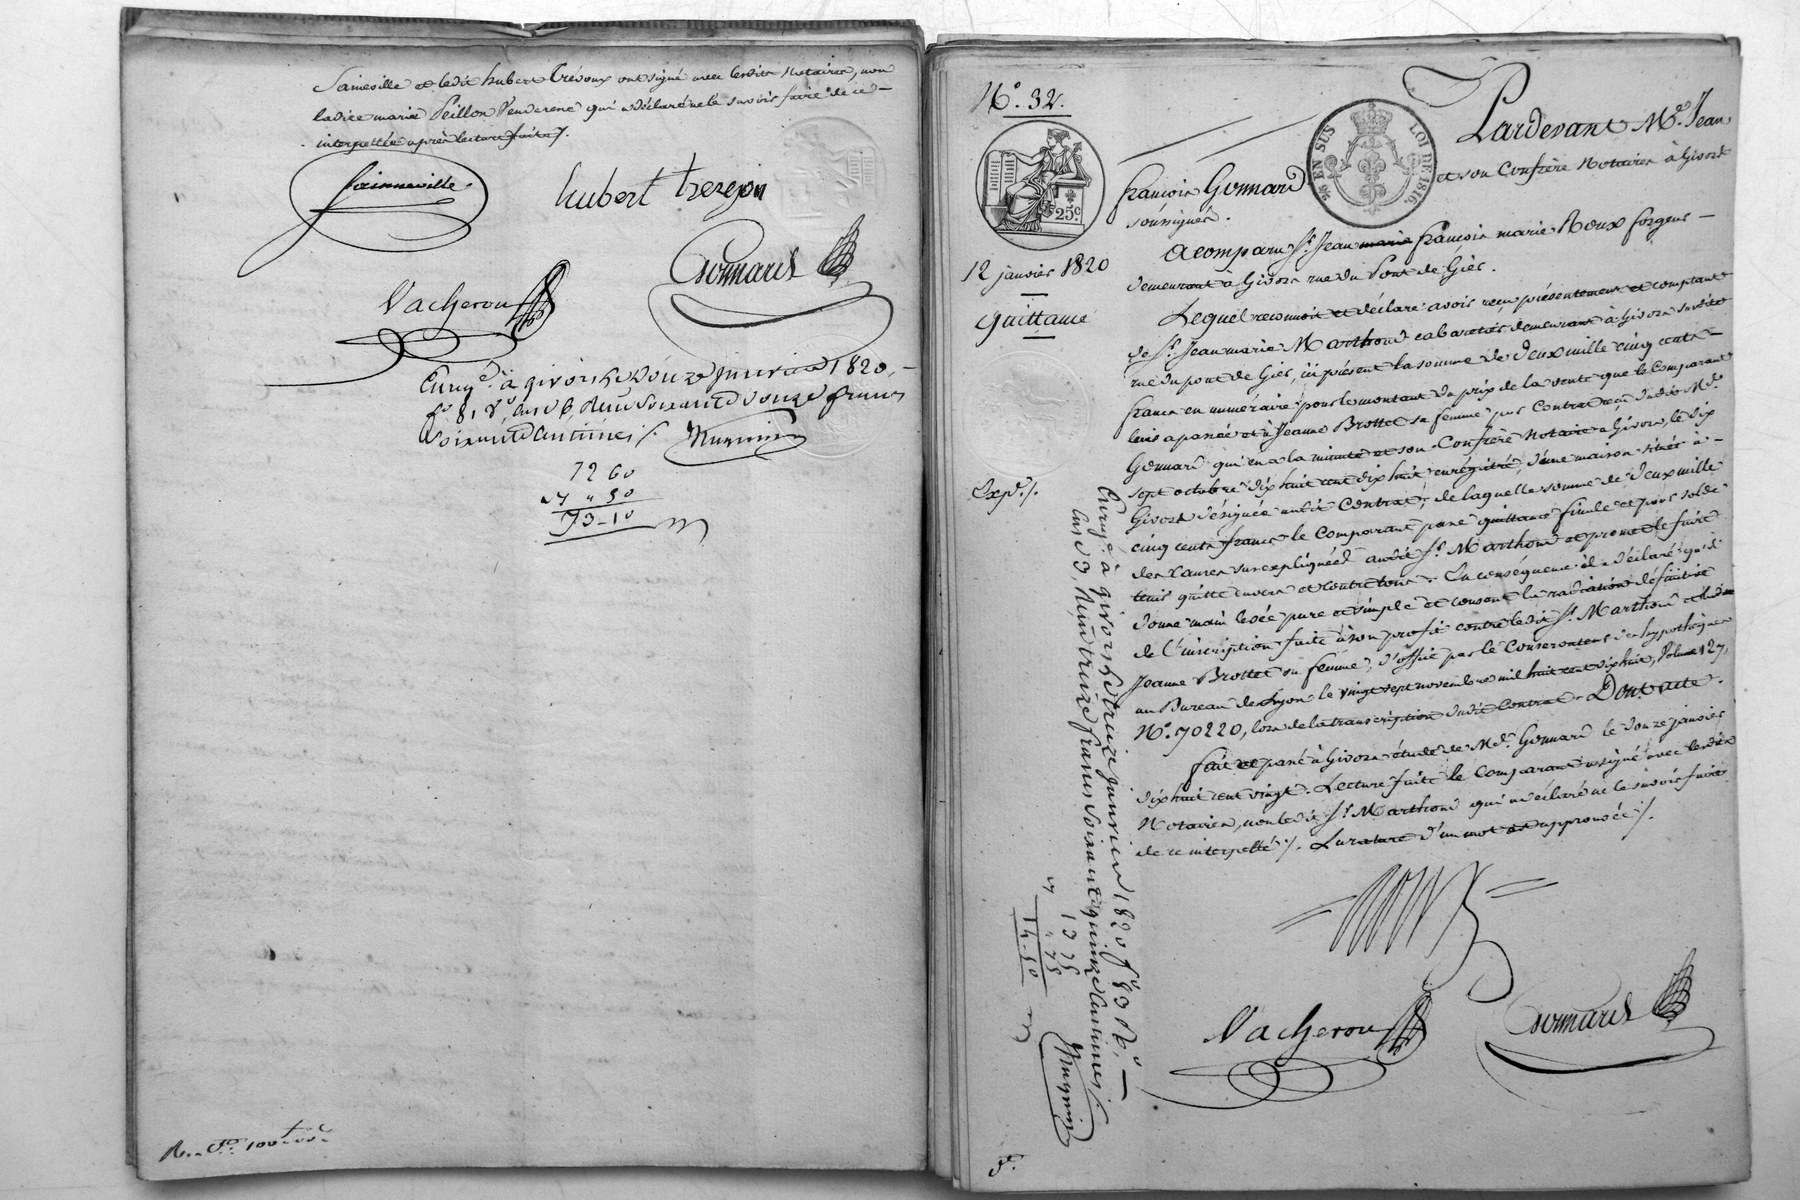 Sainneville et ledit hubert Trévoux ont signé avec lesdits Notaires, non
ladite marie Peillon Venderene qui a déclaré ne le savoir faire de ce
interpellée après lecture faite /.
Sainneville
hubert
Gonnard
Vacheron
Enregé. à givors le douze janvier 1820,
fo. 81 Vo., case 6, Reçu Soixante douze francs
Soixante centimes /.
72 60
7 " 50
73-10
No. 32.
25c.
25c EN SUS
LOI DE 1816
12 janvier 1820
quittance
Expé. /.
Pardevant Me. Jean
françois Gonnard et son Confrère Notaires à Givors
soussignés.
A comparu Sr. Jean marie françois marie Roux forgeur
demeurant à Givors rue du Pont de Gier.
Lequel reconnoit et déclare avoir reçu présentement et comptant
de Sr. Jean marie Marthoud cabaretier demeurant à Givors susdite
rue du pont de Gier, ici présent la somme de Deux mille cinq cents
francs en numéraire pour le montant du prix de la vente que le Comparant
leur a passée et à Jeanne Brottet sa femme par Contrat reçu dudit Me.
Gonnard qui en a la minute et son Confrère Notaire à Givors, le dix
sept octobre dix huit cent dix huit enregistré, d'une maison située à
Givors désignée audit Contrat; de laquelle somme de Deux mille
cinq cents francs le Comparant passe quittance finale et pour solde
des causes sus expliquées audit Sr. Marthoud et promet le faire
tenir quitte envers et contre tous. En conséquence il a déclaré qu'il
donne main levée pure et simple et consent la radiation définitive
de l'inscription faite à son profit contre ledit Sr. Marthoud et ladite
Jeanne Brottet sa femme, d'office par le Conservateur des hypothèques
au Bureau de Lyon le vingt sept novembre mil huit cent dix huit, Volume 127,
No. 70220, lors de la transcription dudit Contrat. Dont acte.
fait et passé à Givors étude de Me. Gonnard le douze janvier
dix huit cent vingt. Lecture faite le Comparant a signé avec lesdits
Notaires, non ledit Sr. Marthoud qui a déclaré ne le savoir faire
de ce interpellé /. La rature d'un mot est approuvée /.
Roux
Vacheron
Gonnard
Enregé. à givors le treize janvier 1820 fo. 83 Ro.
case 3, Reçu treize francs Soixante quinze Centimes /.
13 75
7 " 75
14-50